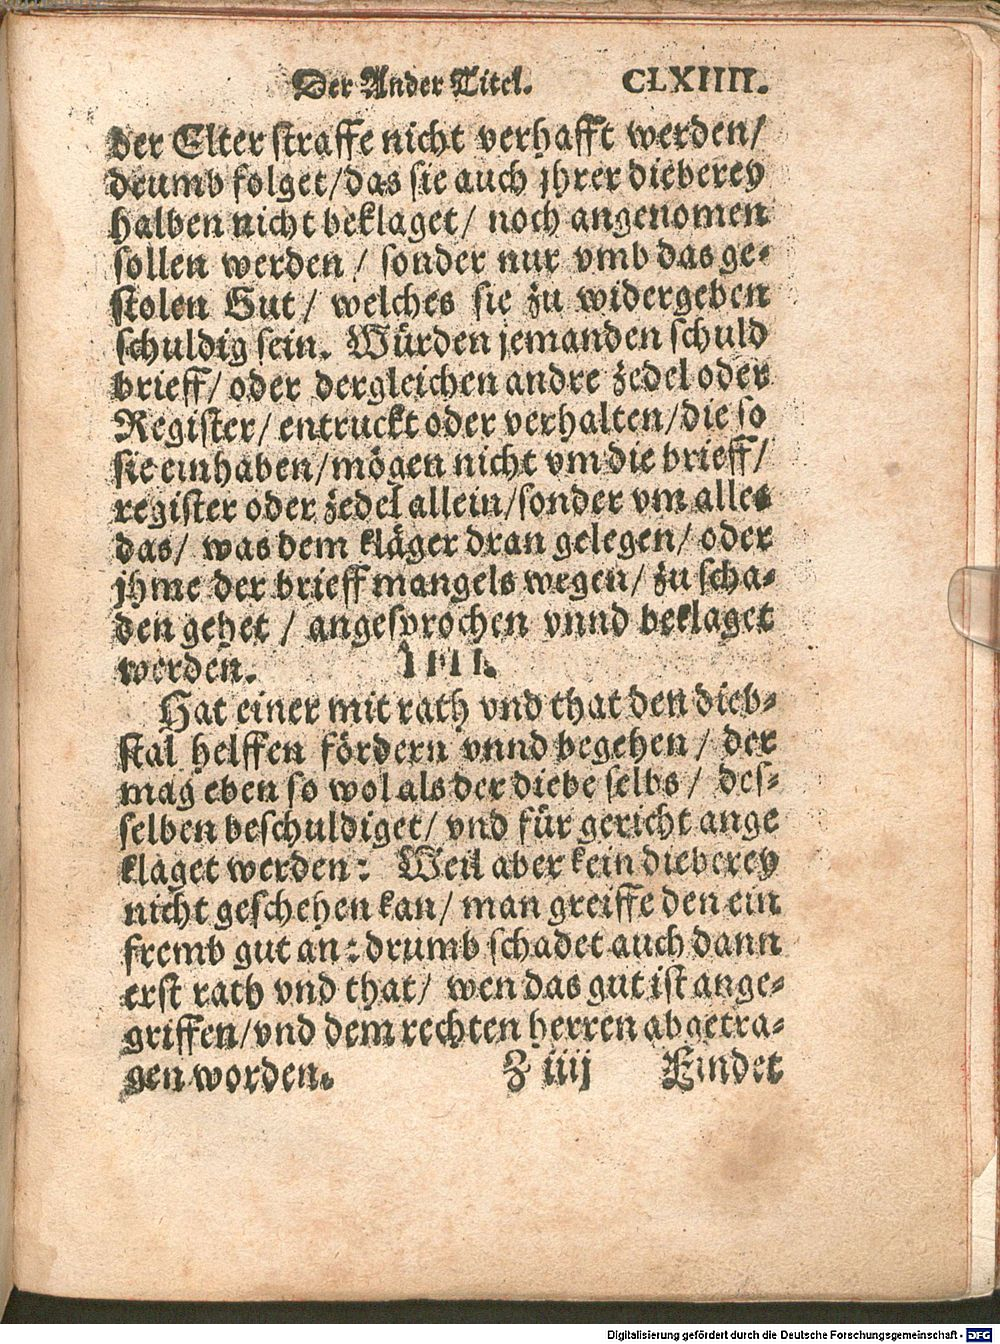 Der Ander Titel. CLXIIII.
der Elter straffe nicht verhafft werden/
drumb folget/das sie auch jhrer dieberey
halben nicht beklaget/ noch angenomen
sollen werden/ sonder nur vmb das ge-
stolen Gut/ welches sie zu widergeben
schuldig sein. Würden jemanden schuld
brieff/ oder dergleichen andre zedel oder
Register/ entruckt oder verhalten/die so
sie einhaben/mögen nicht vm die brieff/
register oder zedel allein/sonder vm alles
das/ was dem kläger dran gelegen/ oder
jhme der brieff mangels wegen/ zu scha-
den gehet/ angesprochen vnnd beklaget
werden. IIII.
Hat einer mit rath vnd that den dieb-
stal helffen fördern vnnd begehen/ der
mag eben so wol als der diebe selbs/ des-
selben beschuldiget/ vnd für gericht ange
klaget werden: Weil aber kein dieberey
nicht geschehen kan/ man greiffe den ein
fremb gut an: drumb schadet auch dann
erst rath vnd that/ wen das gut ist ange-
griffen/vnd dem rechten herren abgetra-
gen worden. Z iiij Findet
Digitalisierung gefördert durch die Deutsche Forschungsgemeinschaft - DFG